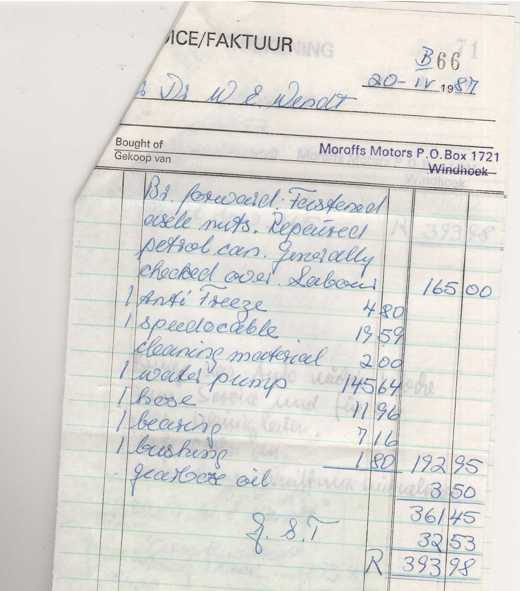 ICE/FAKTUUR
B66
20-IV 1987
Dr W E Wendt
Bought of
Gekoop van
Moroffs Motors P.O.Box 1721
Windhoek
Br. forward. Fastened
axele nuts. Repeired
petrol can. Generally
checked over. Labour 165 00
1 Anti Freeze 4 80
1 speedocable 19 59
cleaning material 2 00
1 water pump 145 64
1 hose 11 96
1 bearing 7 16
1 bushing 1 80 192 95
gearboxe oil 3 50
361 45
G.S.T 32 53
R 393 98